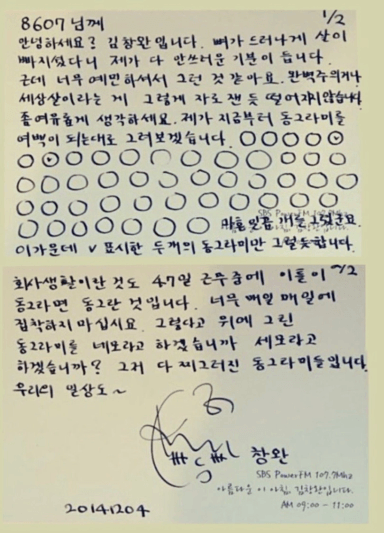 8607님께 1/2
안녕하세요? 김창완입니다. 뼈가 드러나게 살이
빠지셨다니 제가 다 안쓰러운 기분이 듭니다.
근데 너무 예민하셔서 그런 것 같아요. 완벽주의거나
세상살이라는 게 그렇게 자로 잰 듯 떨어지지 않습니다
좀 여유롭게 생각하세요. 제가 지금부터 동그라미를
여백이 되는대로 그려보겠습니다.
마흔일곱 개를 그렸군요.
이 가운데 v 표시한 두개의 동그라미만 그럴듯합니다.
회사생활이란 것도 47일 근무중에 이틀이 2/2
동그라면 동그란 것입니다. 너무 매일매일에
집착하지 마십시요. 그렇다고 위에 그린
동그라미를 네모라고 하겠습니까 세모라고
하겠습니까? 그저 다 찌그러진 동그라미들입니다.
우리의 일상도~
창완
SBS PowerFM 107.7Mhz
아름다운 이 아침, 김창완입니다.
AM 09:00 - 11:00
20141204